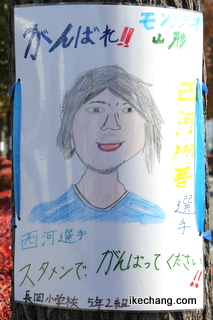 がんばれ!!
モンテディオ
山形
西河翔吾選手
西河選手
スタメンで、がんばってください!!
長岡小学校 5年2組
ikechang.com